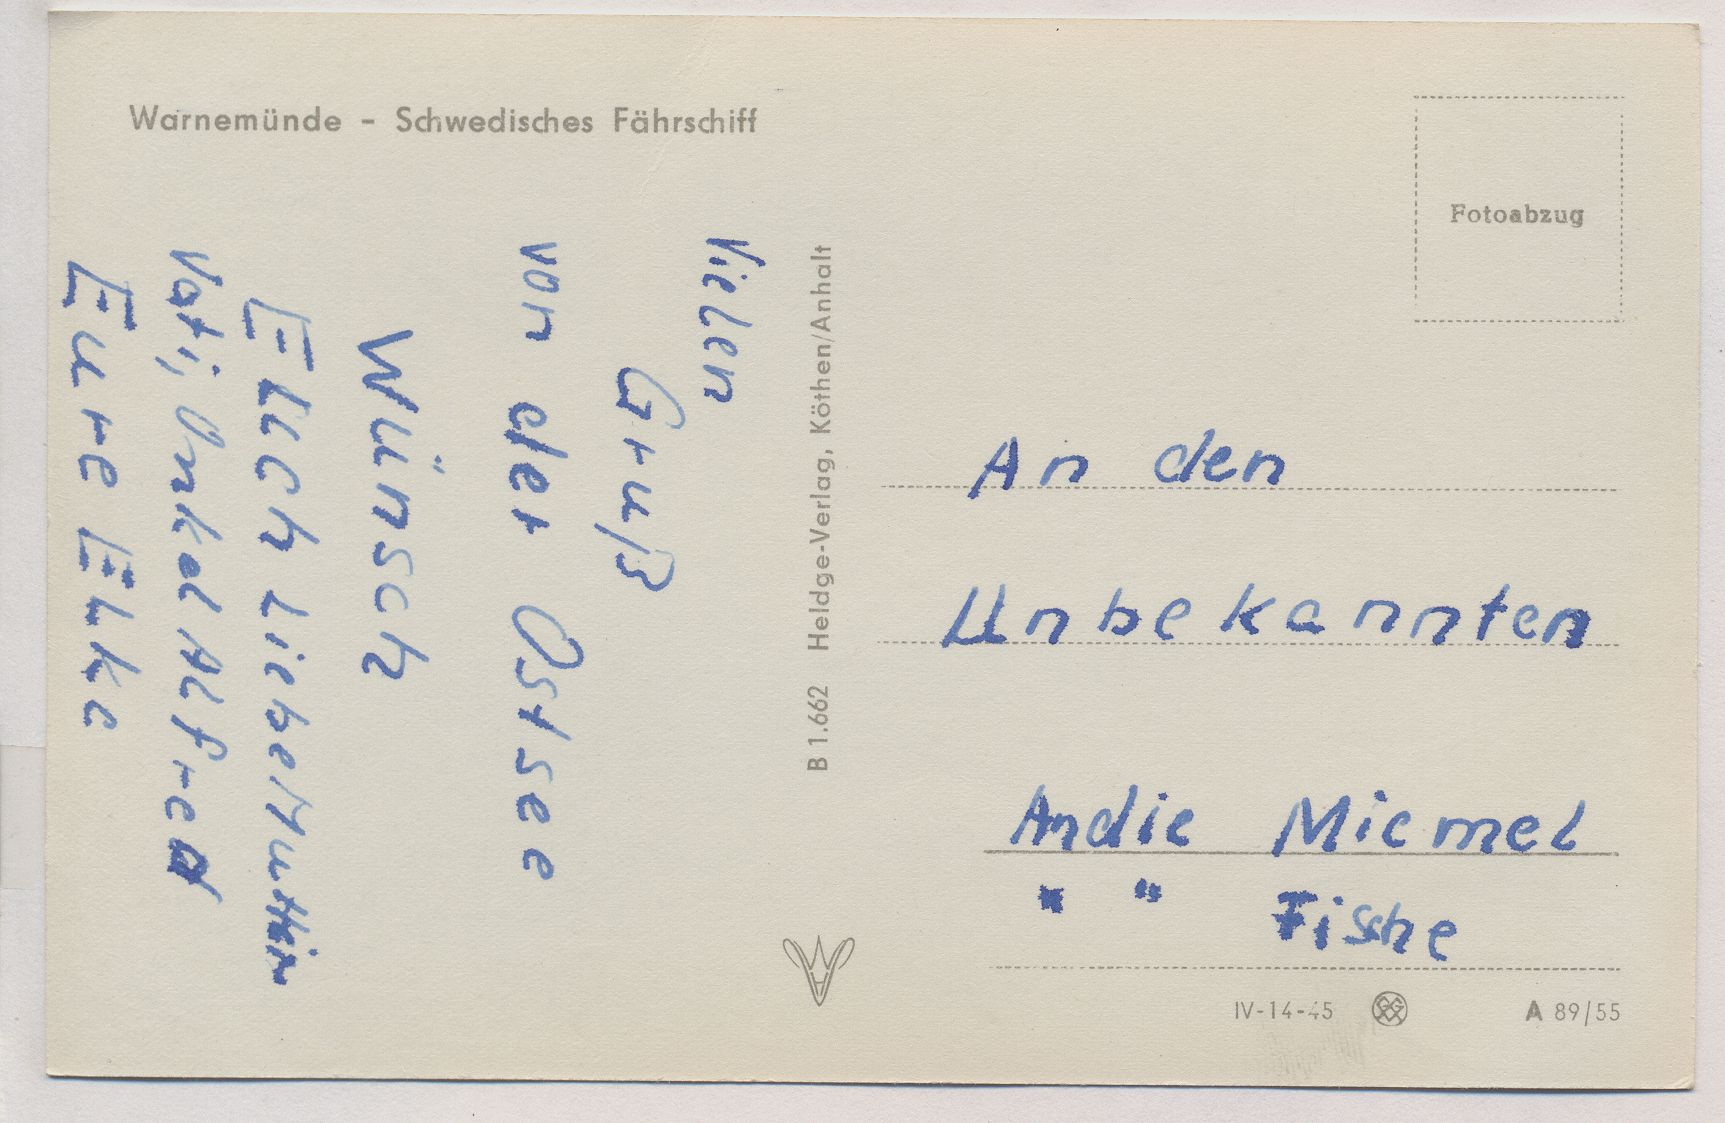 Warnemünde - Schwedisches Fährschiff
Vielen
Gruß
von der Ostsee
Wünsch
Euch liebe Mutti
Vati, Onkel Alfred
Eure Elke
B 1.662 Heldge-Verlag, Köthen/Anhalt
Fotoabzug
An den
Unbekannten
An die Miemel
" " Fische
IV-14-45
A 89/55